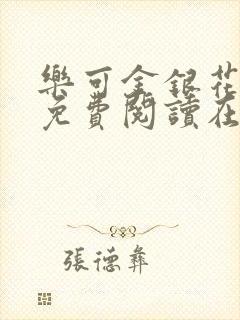 樂可金銀花
免費閱讀在
張德彝